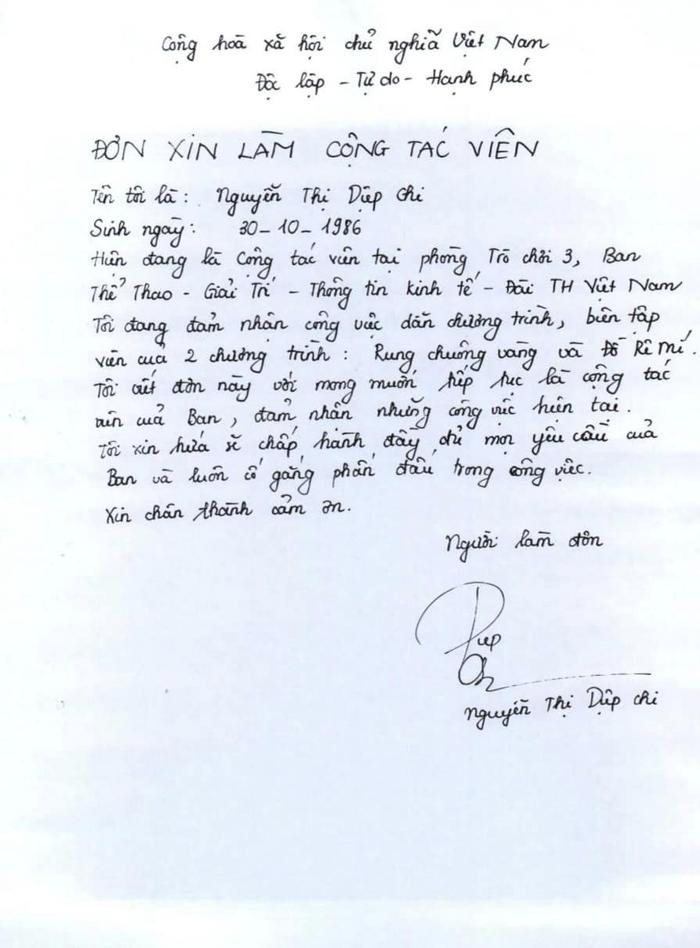 Cộng hoà xã hội chủ nghĩa Việt Nam
Độc lập - Tự do - Hạnh phúc
ĐƠN XIN LÀM CỘNG TÁC VIÊN
Tên tôi là : Nguyễn Thị Diệp Chi
Sinh ngày : 30-10-1986
Hiện đang là Cộng tác viên tại phòng Trò chơi 3, Ban
Thể Thao - Giải Trí - Thông tin kinh tế - Đài TH Việt Nam
Tôi đang đảm nhận công việc dẫn chương trình, biên tập
viên của 2 chương trình : Rung chuông vàng và Đồ Rê Mí.
Tôi viết đơn này với mong muốn tiếp tục là cộng tác
viên của Ban, đảm nhận những công việc hiện tại.
Tôi xin hứa sẽ chấp hành đầy đủ mọi yêu cầu của
Ban và luôn cố gắng phấn đấu trong công việc.
Xin chân thành cảm ơn.
Người làm đơn
Diep
Chi
Nguyễn Thị Diệp Chi